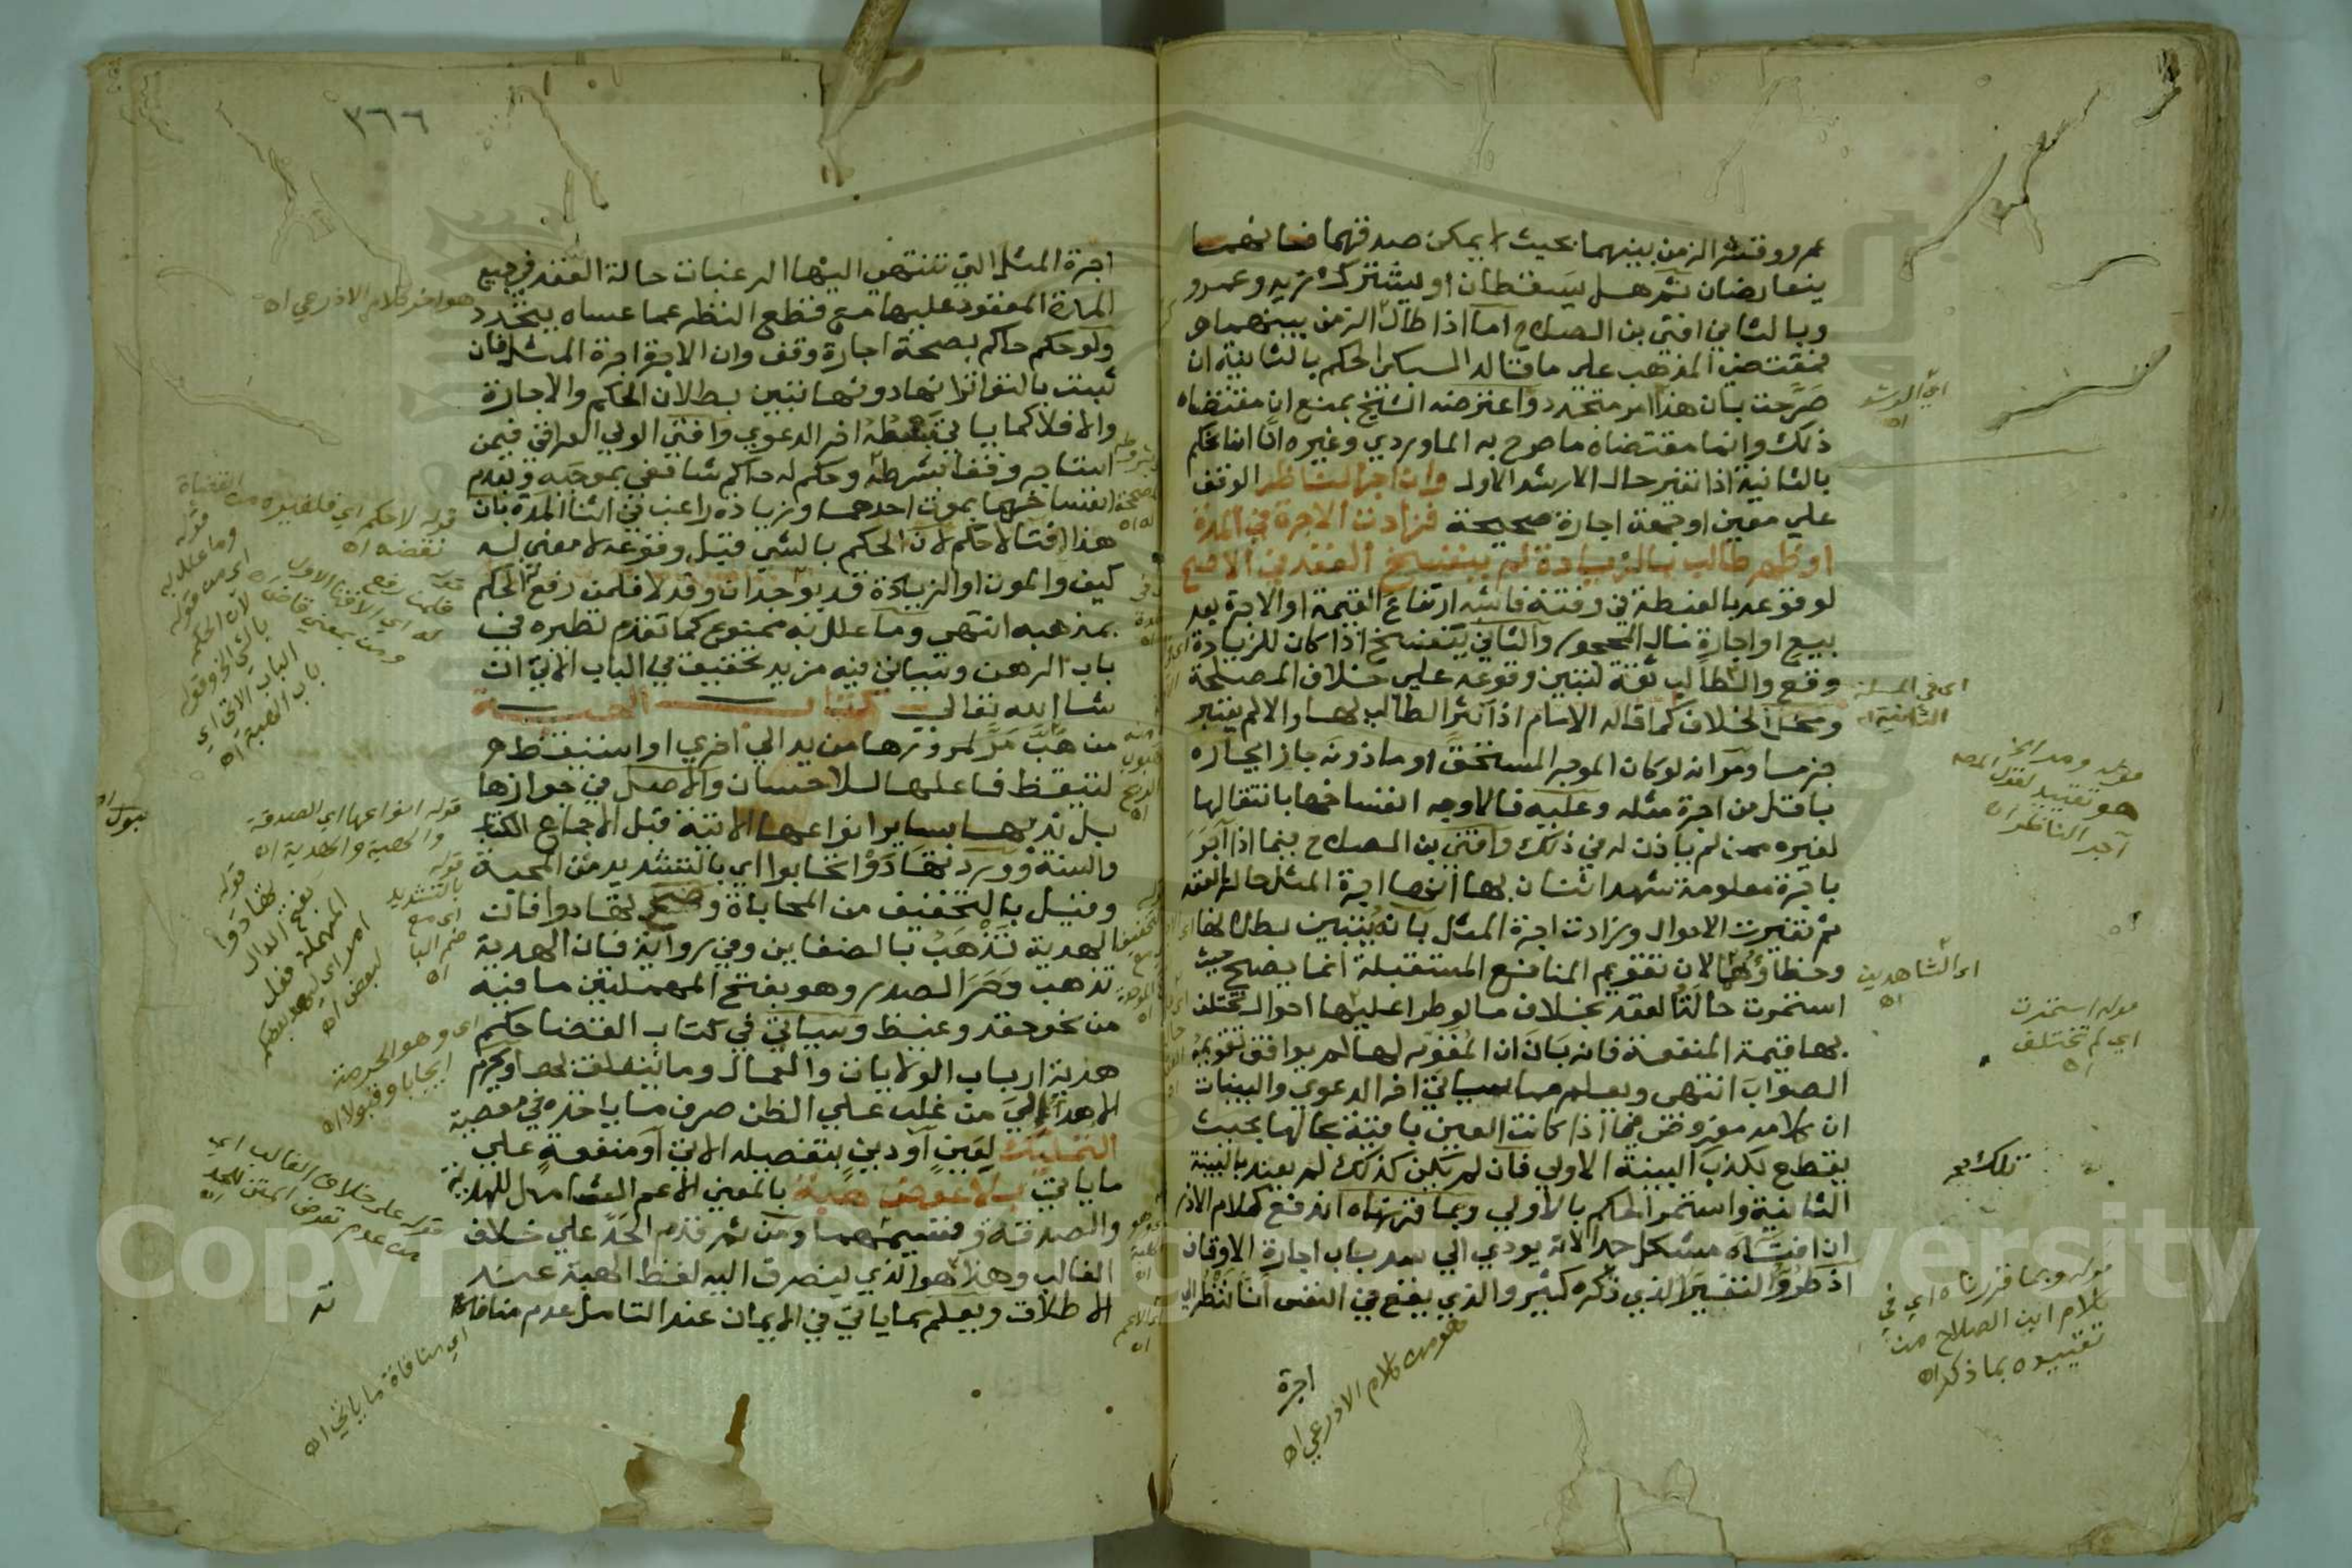 عمرو وقصر الزمن بينهما بحيث لا يمكن صدقهما فحالهما
يتعارضان ثم هل يسقطان او يشترك زيد وعمرو
وبالثاني افتى بن الصلاح اما اذا طال الزمن بينهما
فمقتضى المذهب على ما قاله السبكي الحكم بالثانية ان
صرحت بان هذا امر متجدد واعترضه الشيخ بمنع ان مقتضاه
ذلك وانما مقتضاه ما صرح به الماوردي وغيره انا انما نحكم
بالثانية اذا تغير حال الارشد الاول واذا اجر الناظر الوقف
على معين او جهة اجارة صحيحة فزادت الاجرة في المدة
او ظهر طالب بالزيادة لم ينفسخ العقد في الاصح
لوقوعه بالغبطة في وقته فاشبه ارتفاع القيمة او الاجرة بعد
بيع او اجارة مال المحجور والثاني ينفسخ اذا كان للزيادة
وقع والطالب ثقة لتبين وقوعه على خلاف المصلحة
ومحل الخلاف كما قاله الامام اذا كثر الطالب لها والا لم يعتبر
جزما ومر انه لو كان الموجر المستحق او ماذونه جاز ايجاره
باقل من اجرة مثله وعليه فالاوجه انفساخها بانتقالها
لغيره ممن لم ياذن له في ذلك وافتى بن الصلاح فيما اذا آجر
باجرة معلومة شهد اثنان بها انها اجرة المثل حالة العقد
ثم تغيرت الاحوال وزادت اجرة المثل بانه يتبين بطلانها
وخطاؤهما لان تقويم المنافع المستقبلة انما يصح حيث
استمرت حالة العقد بخلاف ما لو طرا عليها احوال تختلف
بها قيمة المنفعة فانه بان ان المقوم لها لم يوافق تقويمه
الصواب انتهى ويعلم مما سياتي اخر الدعوى والبينات
ان كلامه مفروض فيما اذا كانت العين باقية بحالها بحيث
يقطع بكذب البينة الاولى فان لم يكن كذلك لم يعتد بالبينة
الثانية واستمر الحكم بالاولى وبما قررناه اندفع كلام الاذر
ان افتاه مشكل جدا لانه يودي الى سد باب اجارة الاوقاف
اذ طروّ التغير الذي ذكره كثير والذي يقع في النفس انا ننظر الى
اجرة
هو من كلام الاذرعي اه
اي الارشد اه
اي في المسئلة الثانية اه
هو تقييد لقول المص
آجر الناظر اه
اي الشاهدين اه
قوله استمرت
اي لم تختلف
اه
تلك صح
قوله وبما قررناه اي في
كلام ابن الصلاح من
تقييده بما ذكر اه
٣٦٦
اجرة المثل التي تنتهي اليها الرغبات حالة العقد في جميع
المدة المعقود عليها مع قطع النظر عما عساه يتجدد
ولو حكم حاكم بصحة اجارة وقف وان الاجرة اجرة المثل فان
ثبت بالتواتر انها دونها تبين بطلان الحكم والاجارة
والا فلا كما ياتي بسطه اخر الدعوى وافتى الولي العراقي فيمن
استاجر وقفا بشرطه وحكم له حاكم شافعي بموجبه وبعدم
انفساخها بموت احدهما وزيادة راغب في اثنا المدة بان
هذا افتا لا حكم لان الحكم بالشي قبل وقوعه لا معنى له
كيف والموت او الزيادة قد يوجدان وقد لا فلمن رفع له الحكم
بمذهبه انتهى وما علل به ممنوع كما تقدم نظيره في
باب الرهن وسياتي فيه مزيد تحقيق في الباب الاتي ان
شا الله تعالى كتاب الهبة
من هب مر لمرورها من يد الى اخرى او استيقظ
لتيقظ فاعلها للاحسان والاصل في جوازها
بل ندبها بساير انواعها الاتية قبل الاجماع الكتاب
والسنة وورد تهادوا تحابوا اي بالتشديد من المحبة
وقيل بالتخفيف من المحاباة وصح تهادوا فان
الهدية تذهب بالضغاين وفي رواية فان الهدية
تذهب وحر الصدر وهو بفتح المهملتين ما فيه
من نحو حقد وغيظ وسياتي في كتاب القضا حكم
هدية ارباب الولايات والعمال وما يتعلق بها ويحرم
الاهدا الى من غلب على الظن صرف ما ياخذه في معصية
التمليك لعين او دين بتفصيله الاتي او منفعة على
ما ياتي بلا عوض هبة بالمعنى الاعم الشامل للهدية
والصدقة وقسيمهما ومن ثم قدم الحد على خلاف
الغالب وهذا هو الذي ينصرف اليه لفظ الهبة عند
الاطلاق ويعلم مما ياتي في الايمان عند التامل عدم منافاة
هو اخر كلام الاذرعي اه
قوله لا حكم اي فلغيره من القضاة
نقضه اه
وما علل به
اي من قوله
لان الحكم
بالشي الخ وقوله
الباب الاتي اي
باب الهبة اه
قوله انواعها اي الصدقة
والهبة والهدية اه
قوله
بالتشديد
اي مع
ضم البا
اه
قوله
تهادوا
بفتح الدال
المهملة فعل
امر اي ليهد بعضكم
لبعض اه
اي وهو الحرمة
ايجابا وقبولا اه
قوله على خلاف الغالب اي
من عدم تعرض المتن للحد
اه
اي منافاة ما ياتي اه